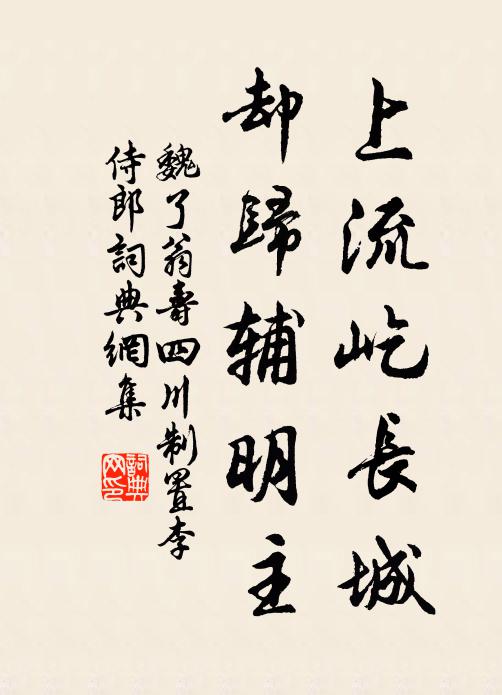 上流屹長城
却歸輔明主
魏了翁壽四川制置李
侍郎詞典網集
詞典
网印